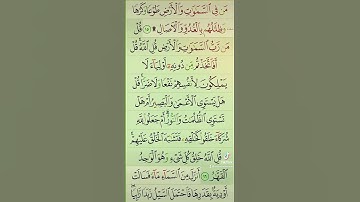 مَن فِي ٱلسَّمَٰوَٰتِ وَٱلْأَرْضِ طَوْعًا وَكَرْهًا
وَظِلَٰلُهُم بِٱلْغُدُوِّ وَٱلْءَاصَالِ ۩ ١٥ قُلْ
مَن رَّبُّ ٱلسَّمَٰوَٰتِ وَٱلْأَرْضِ قُلِ ٱللَّهُ قُلْ
أَفَٱتَّخَذْتُم مِّن دُونِهِۦٓ أَوْلِيَآءَ لَا
يَمْلِكُونَ لِأَنفُسِهِمْ نَفْعًا وَلَا ضَرًّا قُلْ
هَلْ يَسْتَوِي ٱلْأَعْمَىٰ وَٱلْبَصِيرُ أَمْ هَلْ
تَسْتَوِي ٱلظُّلُمَٰتُ وَٱلنُّورُ أَمْ جَعَلُوا۟ لِلَّهِ
شُرَكَآءَ خَلَقُوا۟ كَخَلْقِهِۦ فَتَشَٰبَهَ ٱلْخَلْقُ عَلَيْهِمْ
قُلِ ٱللَّهُ خَٰلِقُ كُلِّ شَيْءٍ وَهُوَ ٱلْوَٰحِدُ
ٱلْقَهَّٰرُ ١٦ أَنزَلَ مِنَ ٱلسَّمَآءِ مَآءً فَسَالَتْ
أَوْدِيَةٌۢ بِقَدَرِهَا فَٱحْتَمَلَ ٱلسَّيْلُ زَبَدًا رَّابِيًا